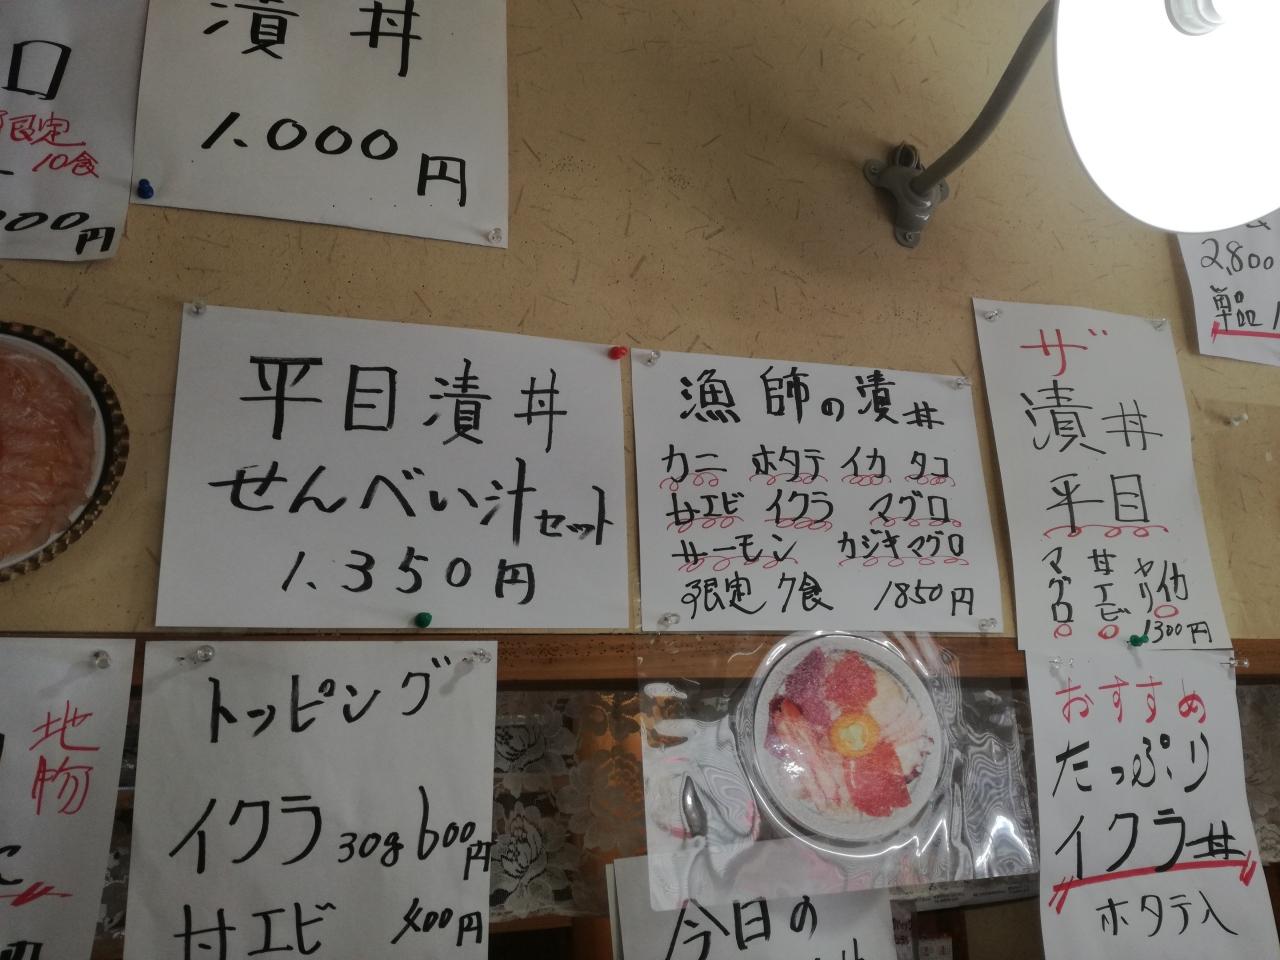 漬丼
1.000円
限定
10食
00円
平目漬丼
せんべい汁セット
1.350円
漁師の漬丼
カニ ホタテ イカ タコ
甘エビ イクラ マグロ
サーモン カジキマグロ
限定7食 1850円
ザ
漬丼
平目
マグロ
甘エビ
ヤリイカ
1300円
2,800
単品
地物
トッピング
イクラ 30g 600円
甘エビ 400円
今日の
おすすめ
たっぷり
イクラ丼
ホタテ入